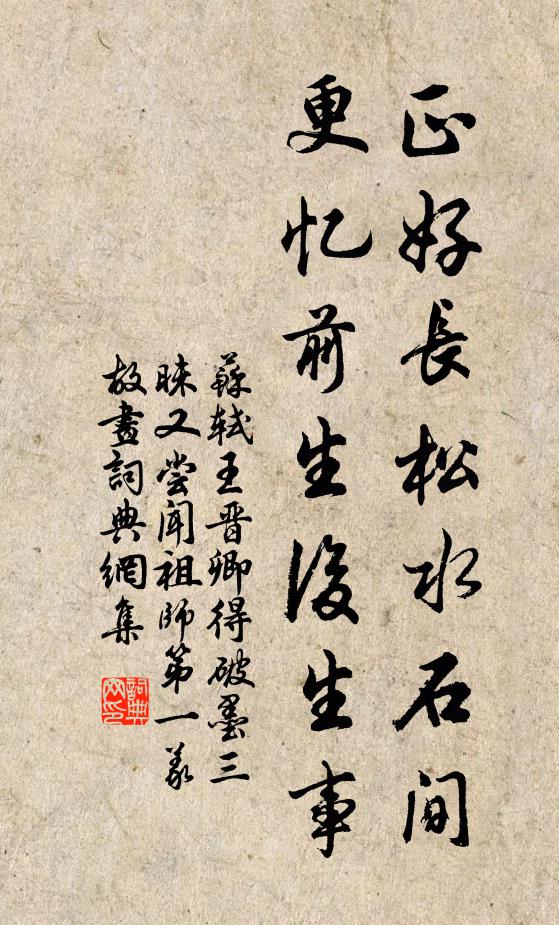 正好長松水石間
更忆前生後生事
蘇軾王晋卿得破墨三
昧又尝闻祖師第一義
故畫詞典網集
詞典網印